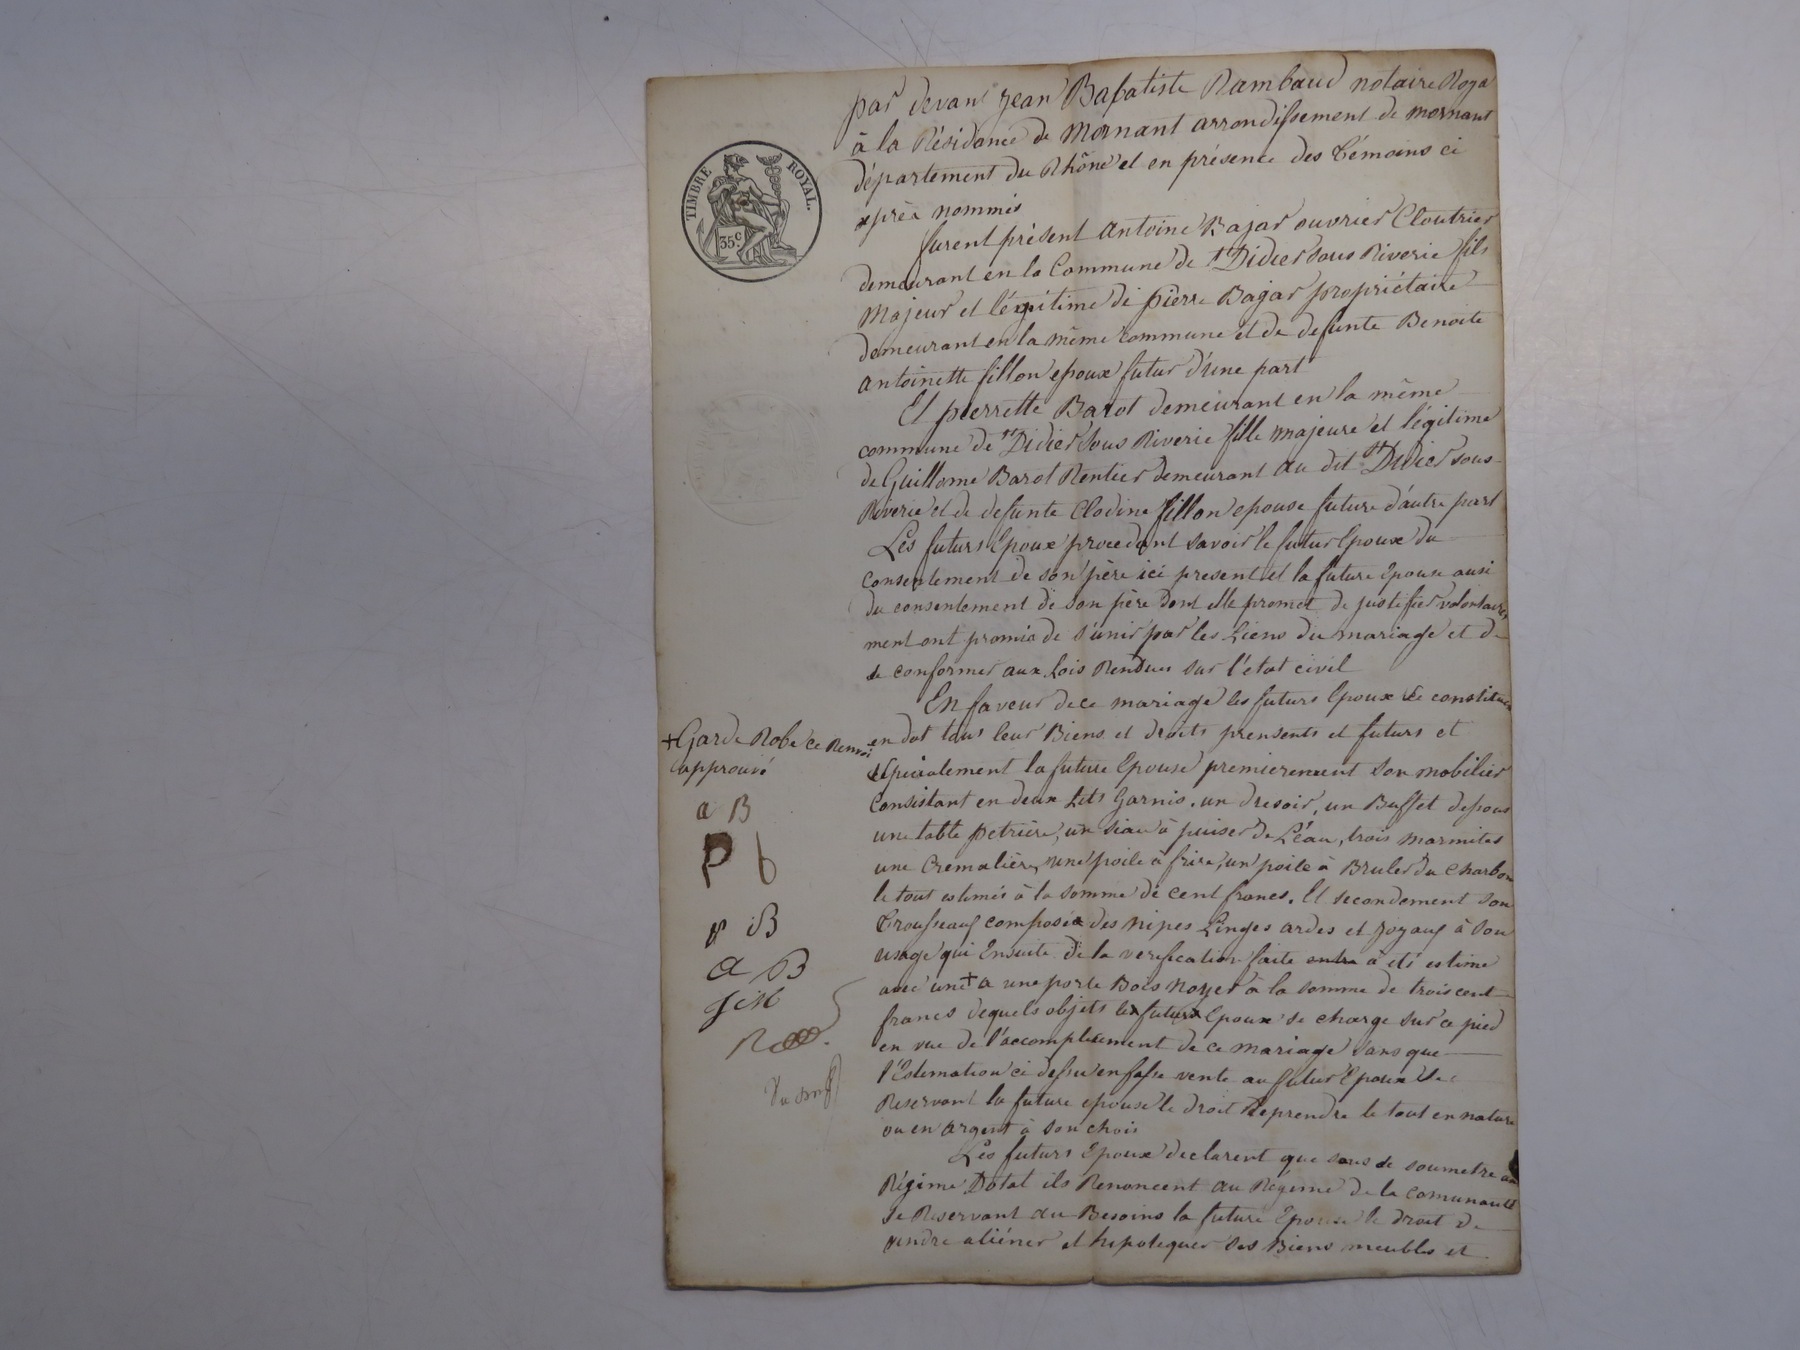 TIMBRE ROYAL.
35 c
par devant jean Babatiste Rambaud notaire Roya
à la Résidance de Mornant arrondissement de mornant
département du Rhône et en présence des témoins ci
après nommés
furent présent antoine Bajar ouvrier Cloutrier
demeurant en la Commune de St Didier sous Riverie fils
Majeur et légitime de pierre Bajar propriétaire
demeurant en la même commune et de defunte Benoite
antoinette fillon epoux futur d'une part
Et pierrette Barot demeurant en la même
commune de St Didier sous Riverie fille majeure et légitime
de Guillome Barot Rentier demeurant au dit St Didier sous
Riverie et de defunte Clodine fillon epouse future d'autre part
Les futurs Epoux procedant savoir le futur Epoux du
consentement de son père ici present et la future Epouse ausi
du consentement de son père dont elle promet de justifier volontaire
ment ont promis de s'unir par les Liens du mariage et de
se conformer aux Lois Rendues sur l'état civil
En faveur de ce mariage les futurs Epoux se constituent
en dot tous leur Biens et droits prensents et futurs et
espécialement la future Epouse premierement son mobilier
Consistant en deux Lits Garnis, un dresoir, un Buffet
une table petrière, un siau à puiser de L'éau, trois marmites
une Cremalière, une poile à frire, un poile à Bruler du charbon
le tout estimés à la somme de cent francs. Et secondement son
trousseau composés des nipes Linges ardes et joyaux à son
usage qui Ensuite de la verification faite entre à été estime
avec une + a une porte Bois Noyer à la somme de trois cent
francs dequels objets le futur Epoux se charge sur ce pied
en vue de l'accomplissement de ce mariage sans que
l'Estimation ci dessu en fasse vente au futur Epoux se
Reservant la future epouse le droit Reprendre le tout en nature
ou en argent à son chois
Les futurs Epoux declarent que sans se soumetre au
Régime Dotal ils Renoncent au Régime de la comunauté
se Reservant au Besoins la future Epouse le droit de
vendre aliéner et hipotequer ses Biens meubles et
+ Garde Robe ce Renvoi
approuvé
a B
P b
B
a B